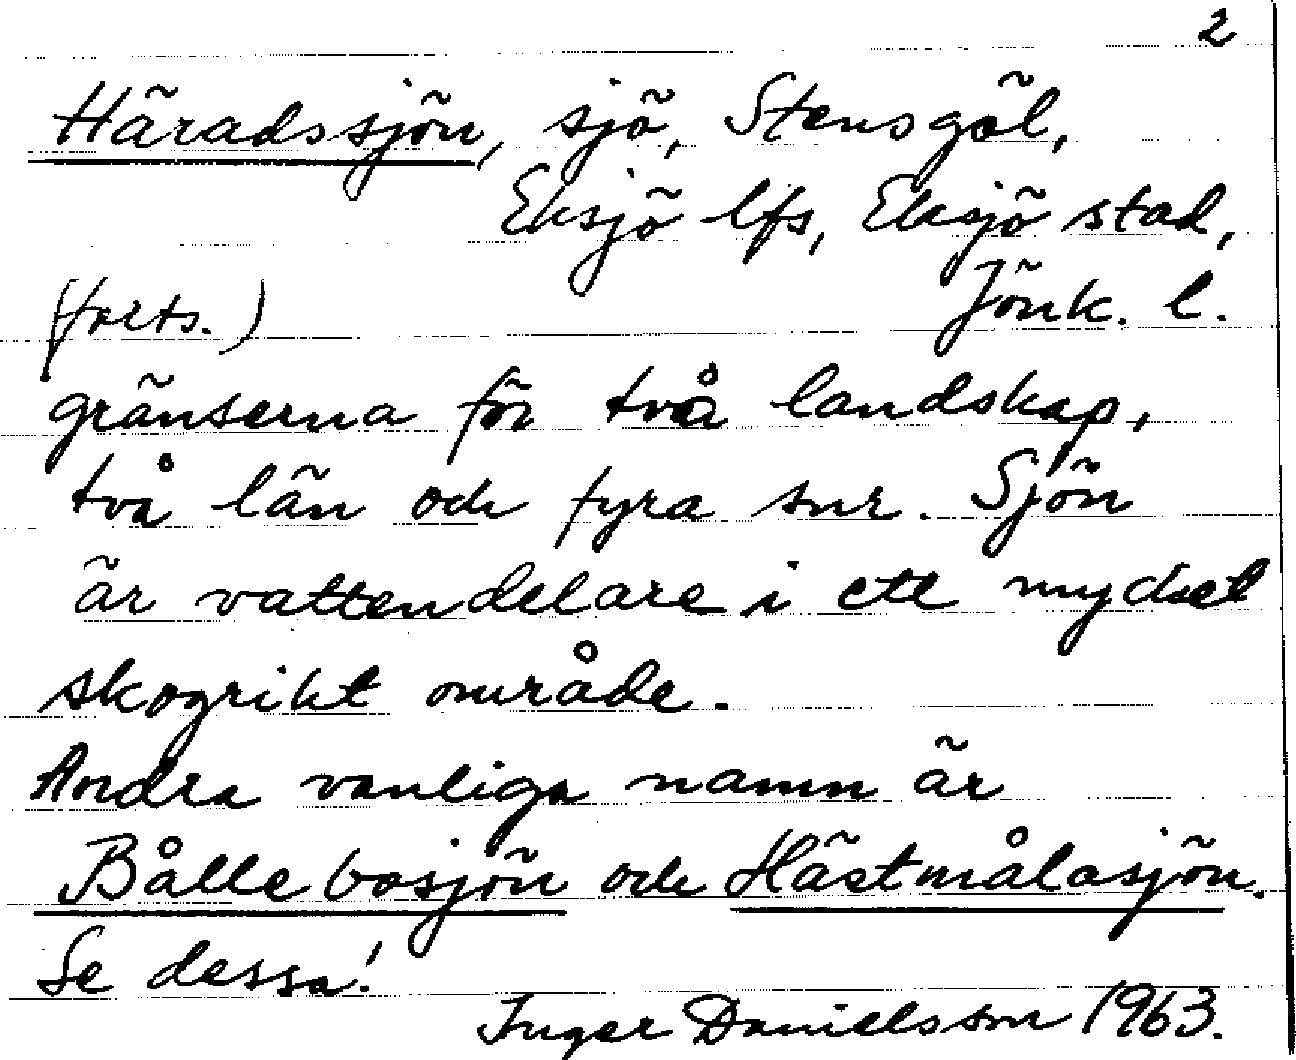 2
Häradssjön, sjö, Stensgöl,
Eksjö lfs, Eksjö stad,
(forts.) Jönk. l.
gränserna för två landskap,
två län och fyra snr. Sjön
är vattendelare i ett mycket
skogrikt område.
Andra vanliga namn är
Bållebosjön och Hästmålasjön.
Se dessa!
Inger Danielsson 1963.